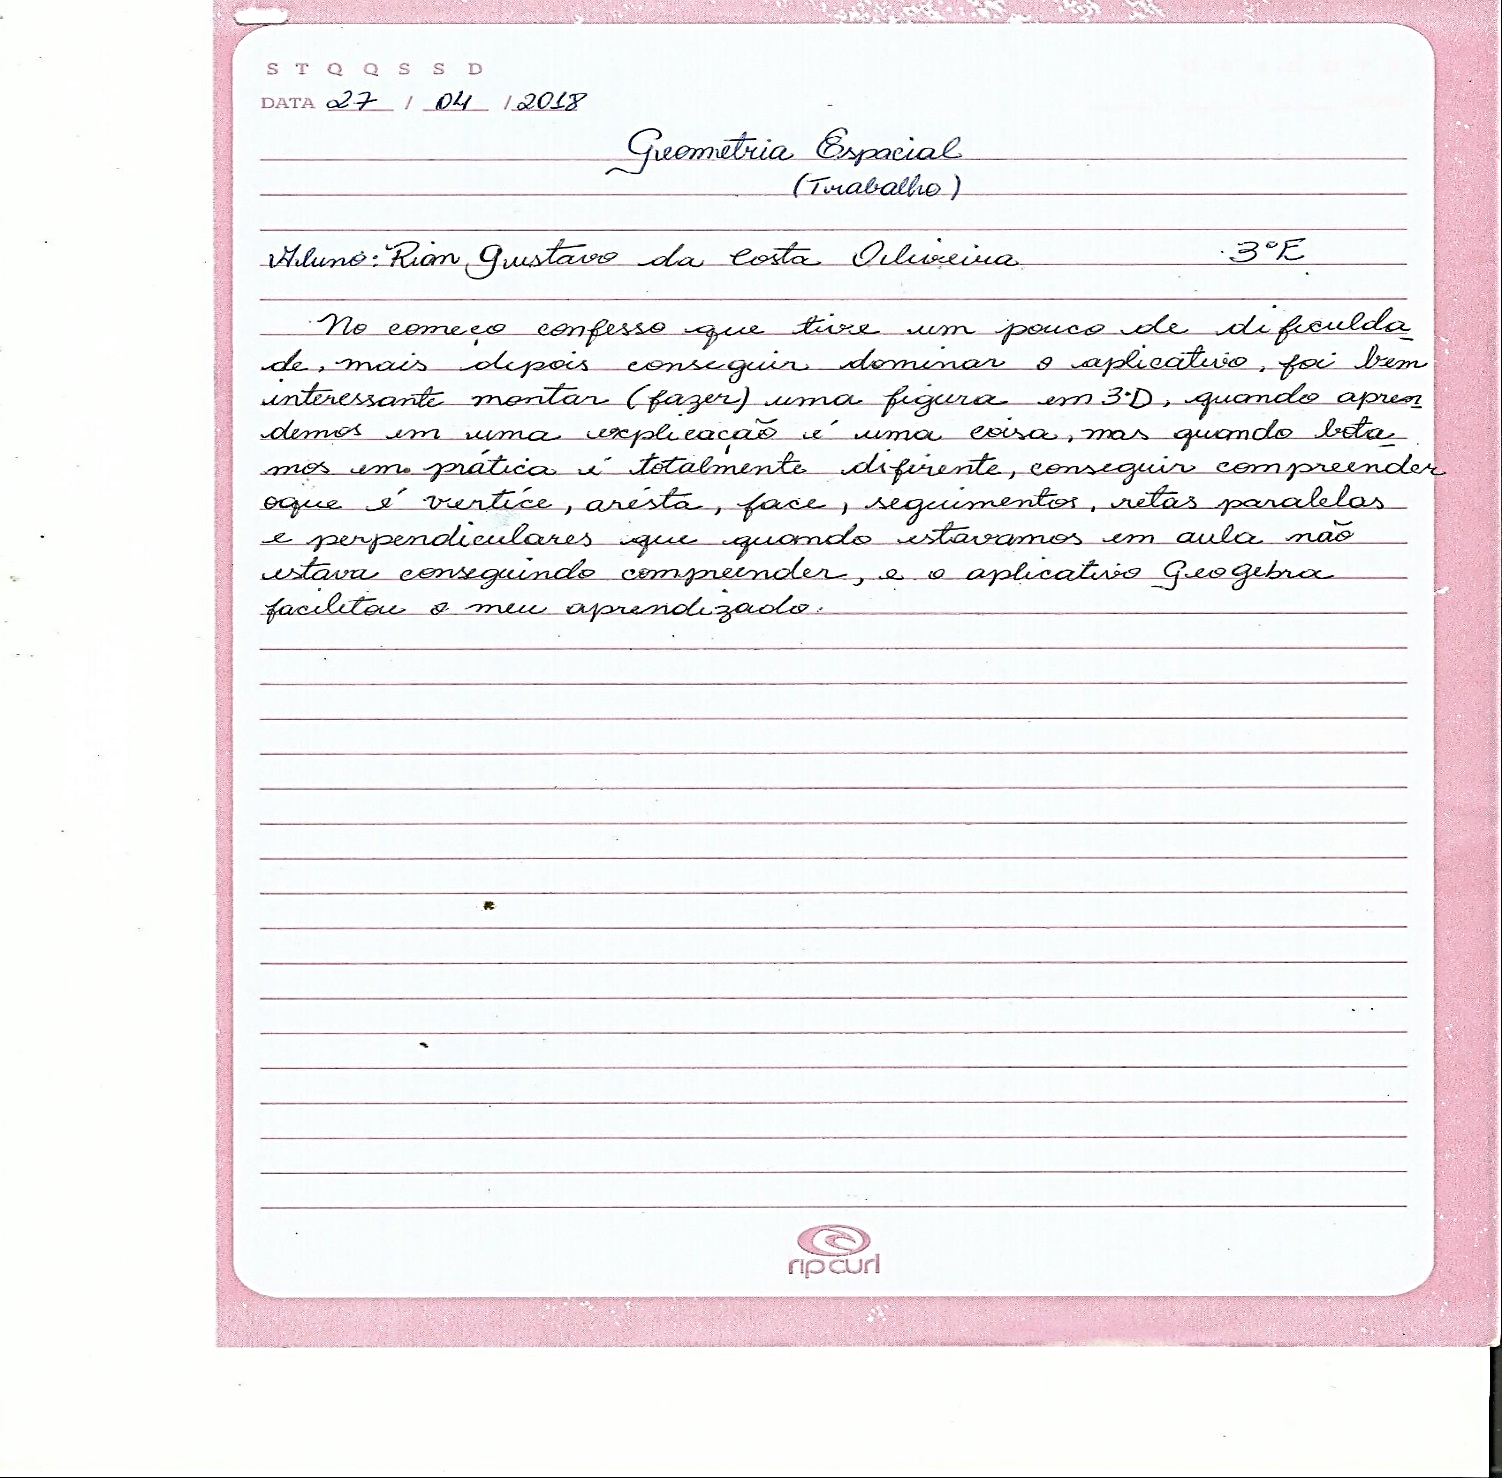 S T Q Q S S D
DATA 27 / 04 / 2018
Geometria Espacial
(Trabalho)
Aluno: Rian Gustavo da Costa Oliveira 3°E
No começo confesso que tive um pouco de dificulda
de, mais depois conseguir dominar o aplicativo, foi bem
interessante montar (fazer) uma figura em 3D, quando apren
demos em uma explicação é uma coisa, mas quando bota
mos em prática é totalmente difirente, conseguir compreender
oque é vertíce, arésta, face, seguimentos, retas paralelas
e perpendiculares que quando estavamos em aula não
estava conseguindo compreender, e o aplicativo Geogebra
facilitou o meu aprendizado.
rip curl